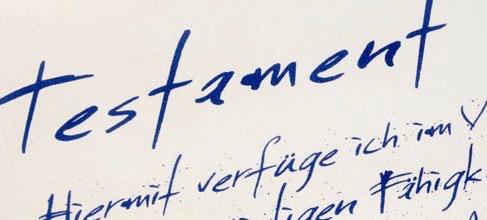 Testament
Hiermit verfüge ich im V
igen Fähigk